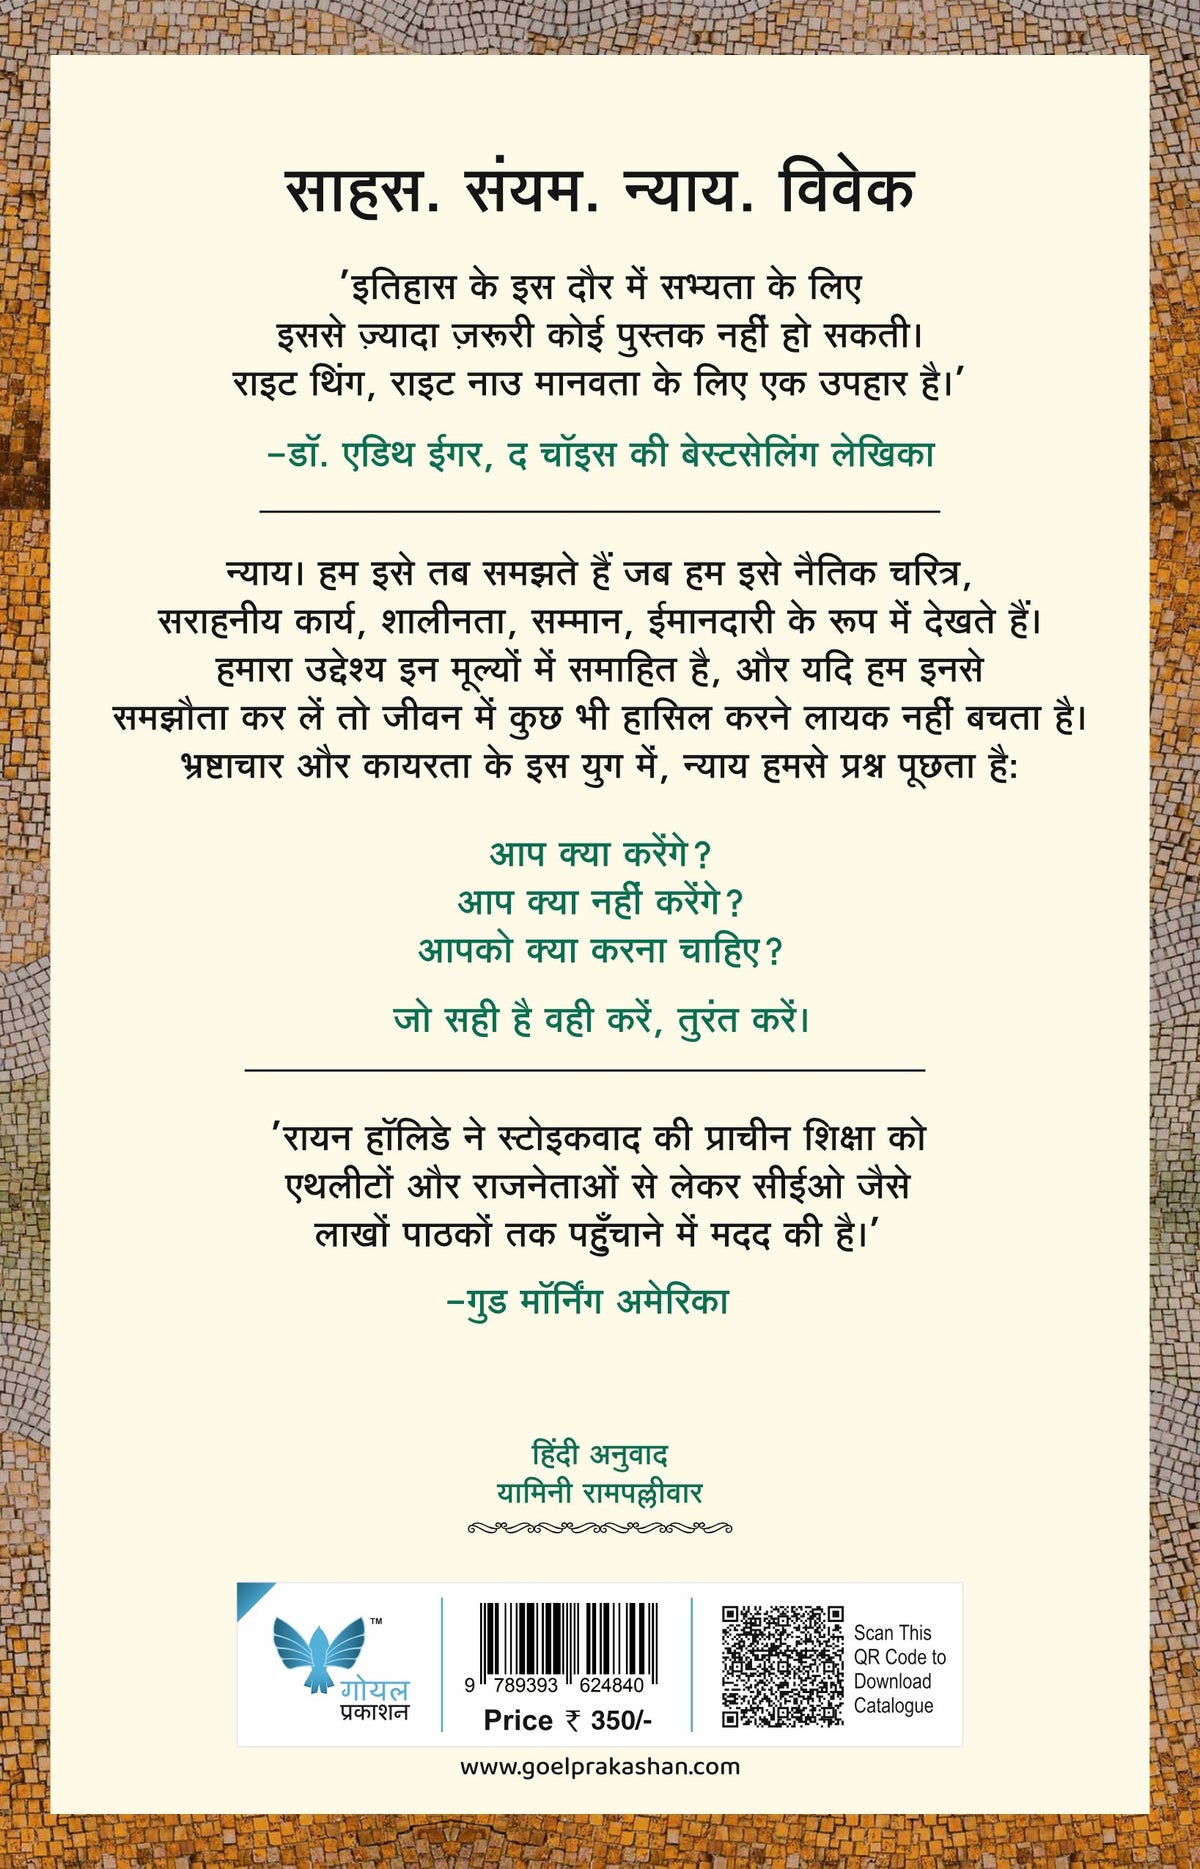 साहस. संयम. न्याय. विवेक
'इतिहास के इस दौर में सभ्यता के लिए
इससे ज़्यादा ज़रूरी कोई पुस्तक नहीं हो सकती।
राइट थिंग, राइट नाउ मानवता के लिए एक उपहार है।'
–डॉ. एडिथ ईगर, द चॉइस की बेस्टसेलिंग लेखिका
न्याय। हम इसे तब समझते हैं जब हम इसे नैतिक चरित्र,
सराहनीय कार्य, शालीनता, सम्मान, ईमानदारी के रूप में देखते हैं।
हमारा उद्देश्य इन मूल्यों में समाहित है, और यदि हम इनसे
समझौता कर लें तो जीवन में कुछ भी हासिल करने लायक नहीं बचता है।
भ्रष्टाचार और कायरता के इस युग में, न्याय हमसे प्रश्न पूछता है:
आप क्या करेंगे?
आप क्या नहीं करेंगे?
आपको क्या करना चाहिए?
जो सही है वही करें, तुरंत करें।
'रायन हॉलिडे ने स्टोइकवाद की प्राचीन शिक्षा को
एथलीटों और राजनेताओं से लेकर सीईओ जैसे
लाखों पाठकों तक पहुँचाने में मदद की है।'
–गुड मॉर्निंग अमेरिका
हिंदी अनुवाद
यामिनी रामपल्लीवार
TM
गोयल
प्रकाशन
9 789393 624840
Price ₹ 350/-
Scan This
QR Code to
Download
Catalogue
www.goelprakashan.com